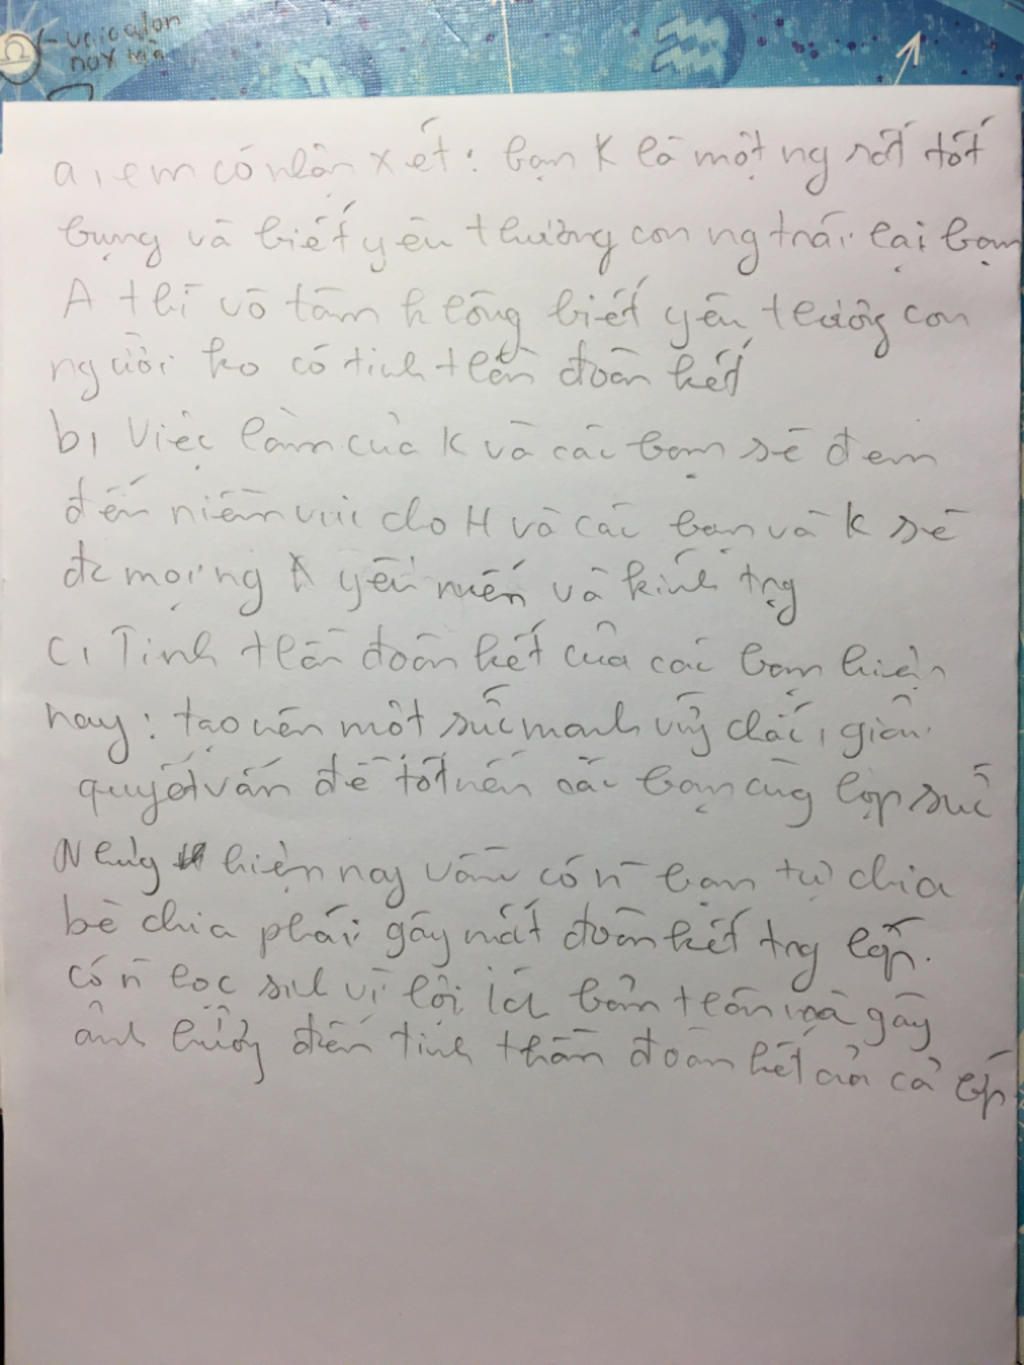 a, em có nhận xét: bạn K là một ng rất tốt
bụng và biết yêu thương con ng trái lại bạn
A thì vô tâm không biết yêu thương con
người ko có tinh thần đoàn kết
b, Việc làm của K và các bạn sẽ đem
đến niềm vui cho H và các bạn và K sẽ
đc mọi ng yêu mến và kính trg
c, Tinh thần đoàn kết của các bạn hiện
nay: tạo nên một sức mạnh vững chắc, giải
quyết vấn đề tốt nếu các bạn cùng hợp sức
Nhưng hiện nay vẫn có n~ bạn tự chia
bè chia phái gây mất đoàn kết trg lớp.
có n~ học sinh vì lợi ích bản thân mà gây
ảnh hưởng đến tinh thần đoàn kết của cả lớp